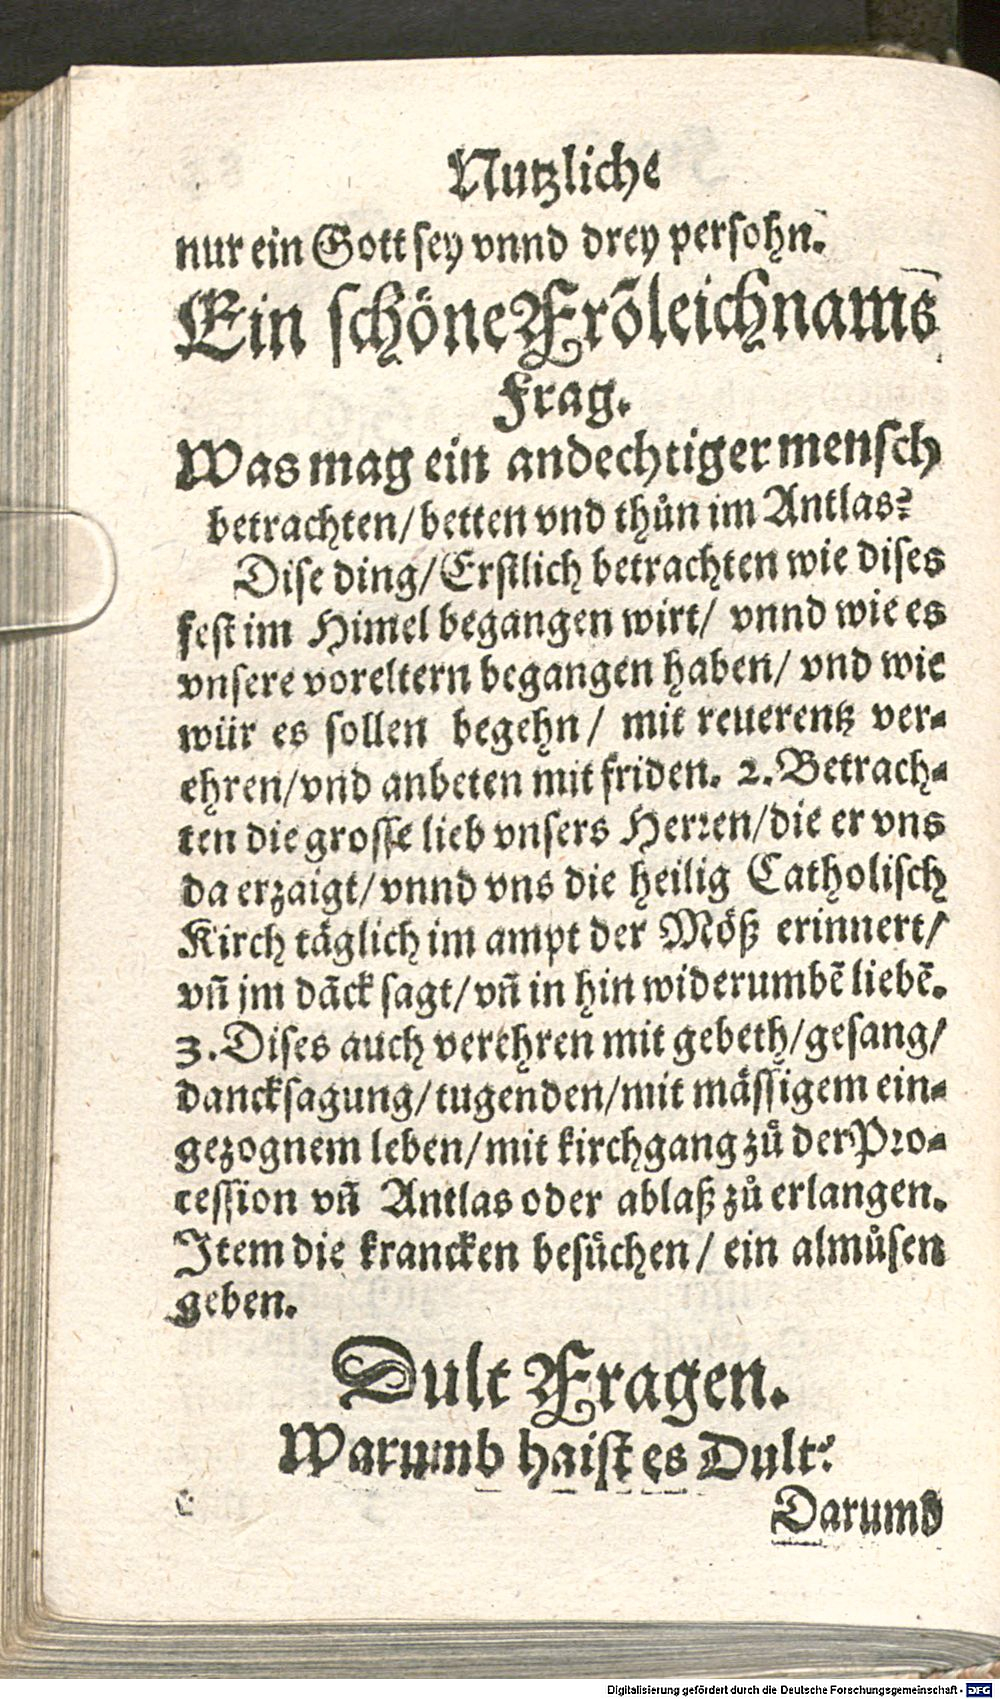 Nutzliche
nur ein Gott sey vnnd drey persohn.
Ein schöne Frōleichnams
Frag.
Was mag ein andechtiger mensch
betrachten/ betten vnd thůn im Antlas?
Dise ding/ Erstlich betrachten wie dises
fest im Himel begangen wirt/ vnnd wie es
vnsere voreltern begangen haben/ vnd wie
wür es sollen begehn/ mit reuerentz ver-
ehren/ vnd anbeten mit friden. 2. Betrach-
ten die grosse lieb vnsers Herren/ die er vns
da erzaigt/ vnnd vns die heilig Catholisch
Kirch täglich im ampt der Möß erinnert/
vñ jm dāck sagt/ vñ in hin widerumbē liebē.
3. Dises auch verehren mit gebeth/ gesang/
dancksagung/ tugenden/ mit mässigem ein-
gezognem leben/ mit kirchgang zů der Pro-
cession vñ Antlas oder ablaß zů erlangen.
Item die krancken besůchen/ ein almůsen
geben.
Dult Fragen.
Warumb haist es Dult?
Darumb
Digitalisierung gefördert durch die Deutsche Forschungsgemeinschaft - DFG